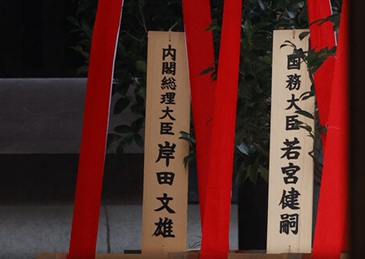 国務大臣 若宮健嗣
内閣総理大臣 岸田文雄